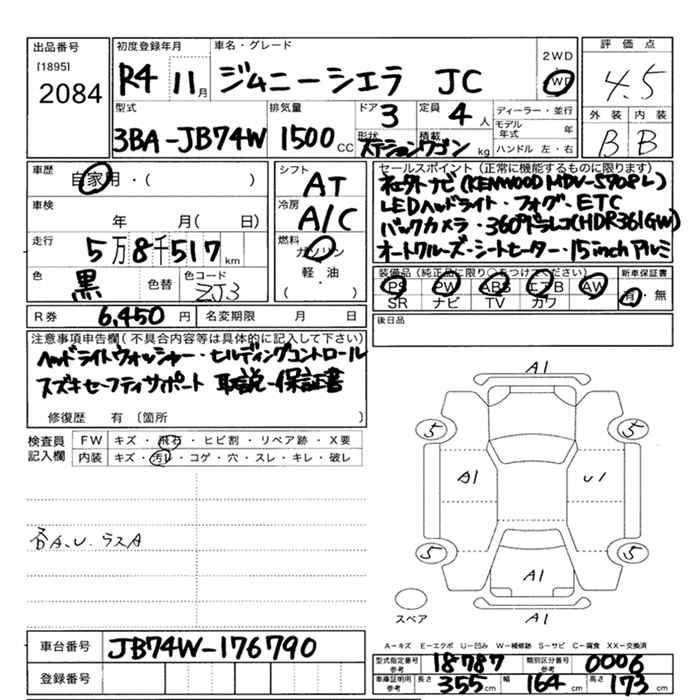 出品番号
[1895]
2084
初度登録年月
R4 11月
車名・グレード
ジムニーシエラ JC
2WD
4WD
評価点
4.5
外装 内装
B B
型式
3BA-JB74W
排気量
1500 CC
ドア 3
形状
ステーションワゴン
定員 4 人
積載 kg
ディーラー・並行
モデル年式 年
ハンドル 左・右
車歴
自家用・( )
シフト
AT
車検
年 月( 日)
冷房
A/C
走行
5万8千517 km
燃料
ガソリン
軽・油
・( )
色
黒
色替
色コード
ZJ3
R券 6,450 円
名変期限 月 日
セールスポイント(正常に機能するものに限ります)
社外ナビ(KENWOOD MDV-S708L)
LEDヘッドライト・フォグ・ETC
バックカメラ・360°ドラレコ(HDR361GW)
オートクルーズ・シートヒーター・15inchアルミ
装備品(純正品に限り○をつけてください)
新車保証書
PS PW ABS エアB AW
有・無
SR ナビ TV カワ
後日品
注意事項申告欄(不具合内容等は具体的に記入して下さい)
ヘッドライトウォッシャー・ヒルディセンドコントロール
スズキセーフティサポート 取説・保証書
修復歴 有 〔箇所 〕
検査員記入欄
FW キズ・飛石・ヒビ割・リペア跡・X要
内装 キズ・汚レ・コゲ・穴・スレ・キレ・破レ
各A、U、ラスA
A1
5 5
A1 U1
5 5
A1
スペア
A1
車台番号 JB74W-176790
登録番号
A-キズ E-エクボ U-凹み W-補修跡 S-サビ C-腐食 XX-交換済
型式指定番号 参考 18787
類別区分番号 参考 0006
車庫証明用 参考 長さ 355cm 幅 164cm 高さ 173cm